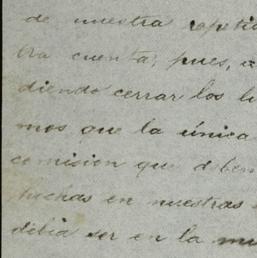 de nuestra repeti
tra cuenta; pues,
diendo cerrar los li
mos que la única
comision que deben
hechas en nuestras
debia ser en la mis